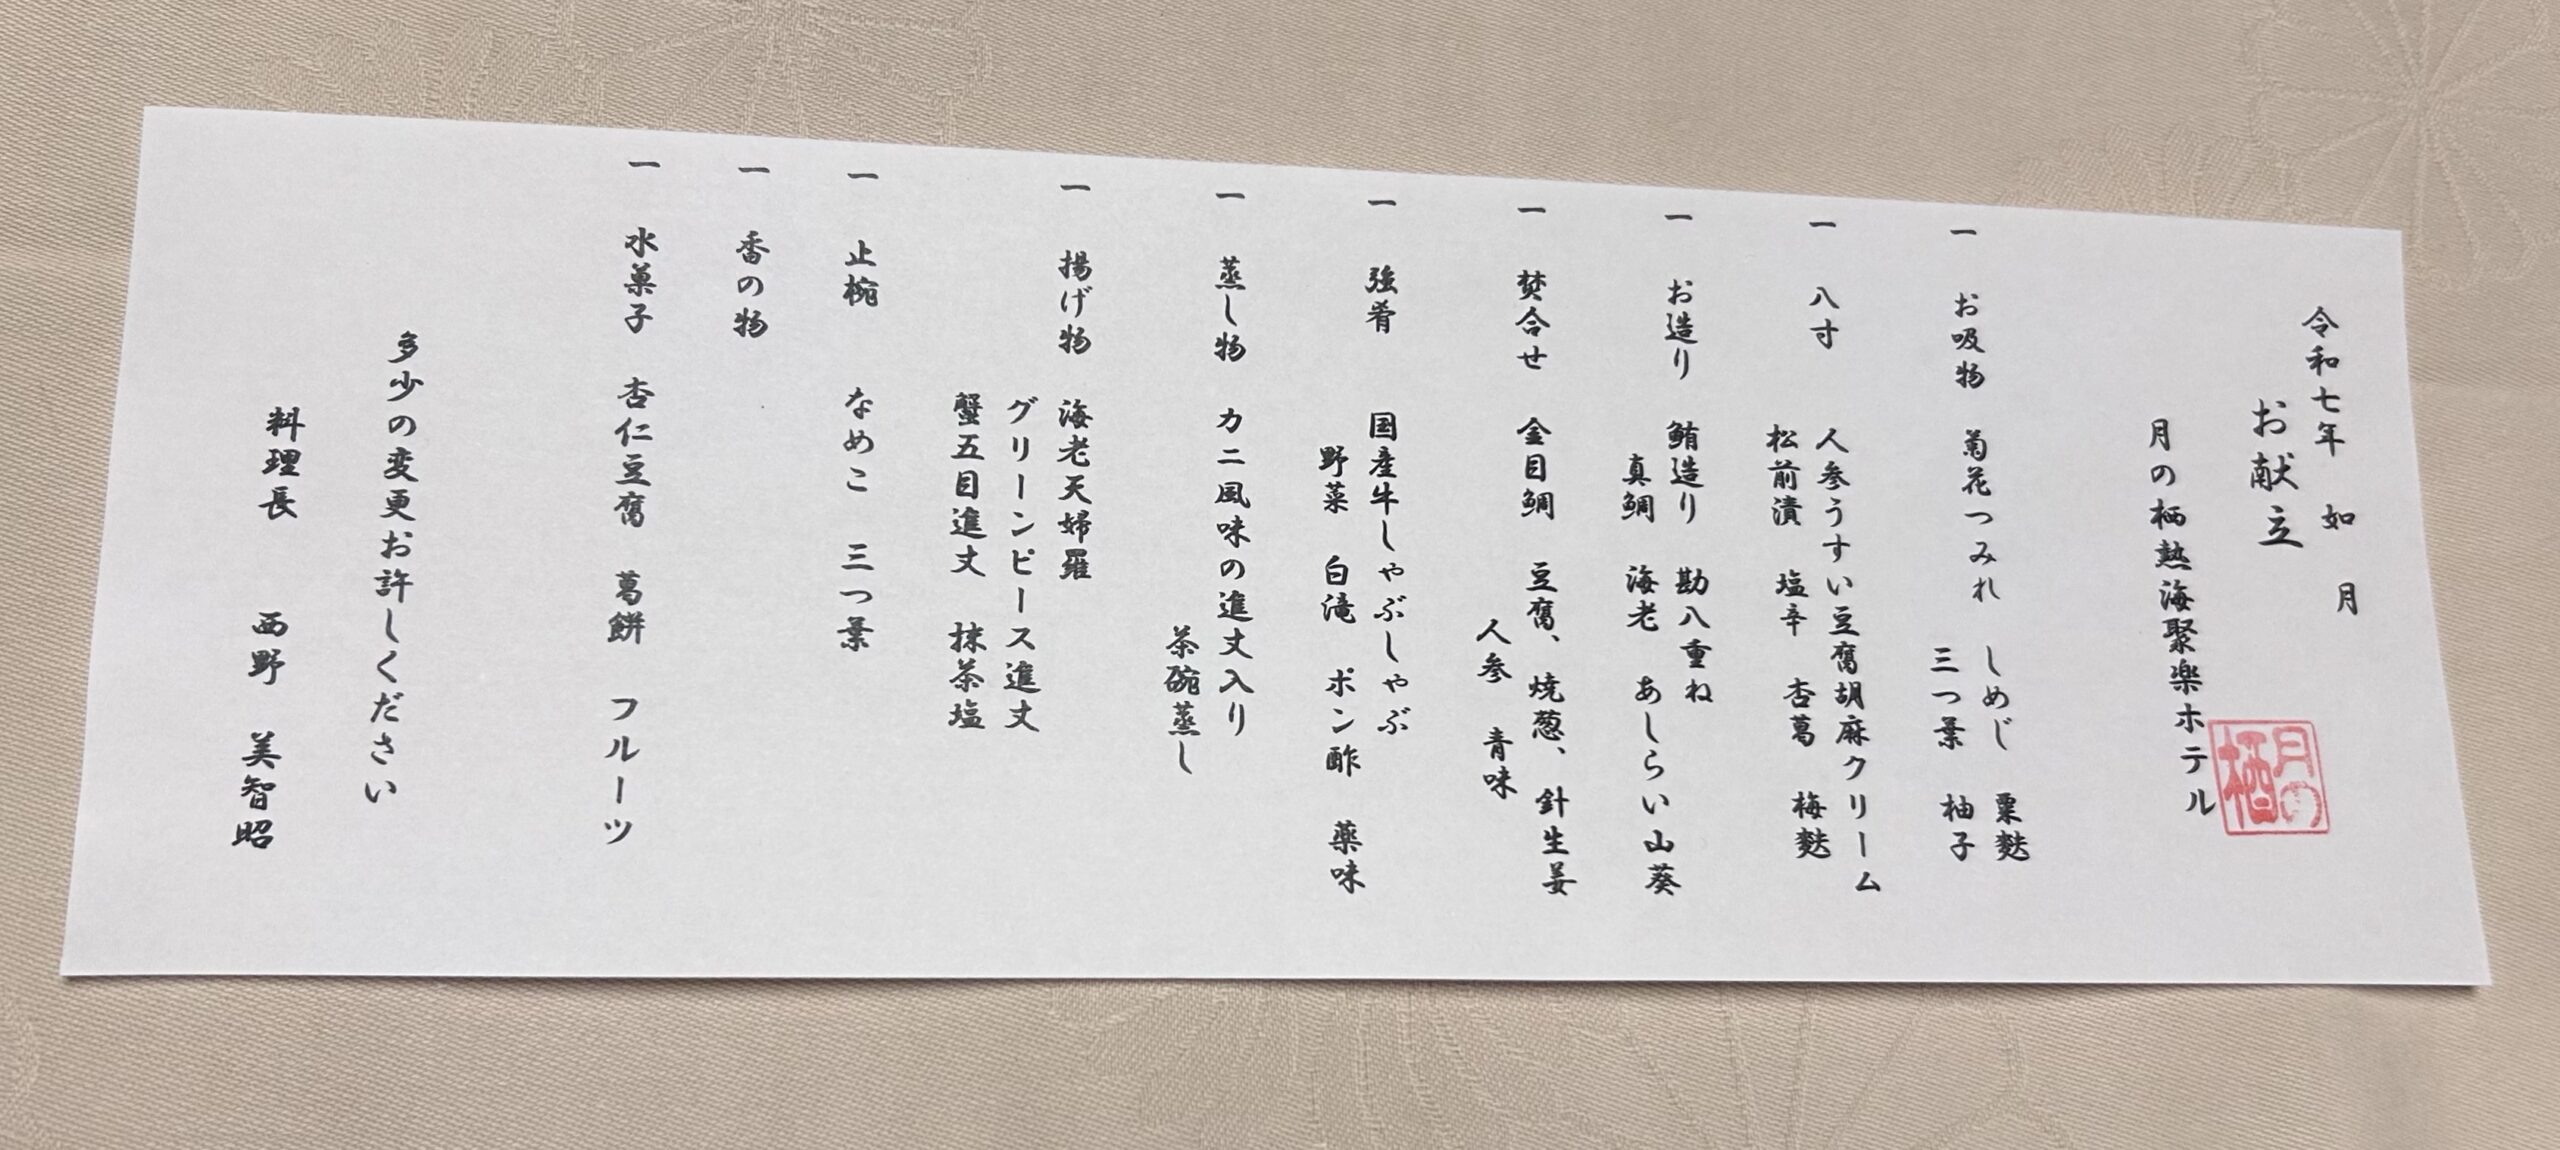 令和七年 如 月
お献立
月の栖熱海聚楽ホテル
月の栖
一 お吸物 菊花つみれ しめじ 粟麩
三つ葉 柚子
一 八寸 人参うすい豆腐胡麻クリーム
松前漬 塩辛 杏葛 梅麩
一 お造り 鮪造り 勘八重ね
真鯛 海老 あしらい山葵
一 焚合せ 金目鯛 豆腐、焼葱、針生姜
人参 青味
一 強肴 国産牛しゃぶしゃぶ
野菜 白滝 ポン酢 薬味
一 蒸し物 カニ風味の進丈入り
茶碗蒸し
一 揚げ物 海老天婦羅
グリーンピース進丈
蟹五目進丈 抹茶塩
一 止椀 なめこ 三つ葉
一 香の物
一 水菓子 杏仁豆腐 葛餅 フルーツ
多少の変更お許しください
料理長 西野 美智昭